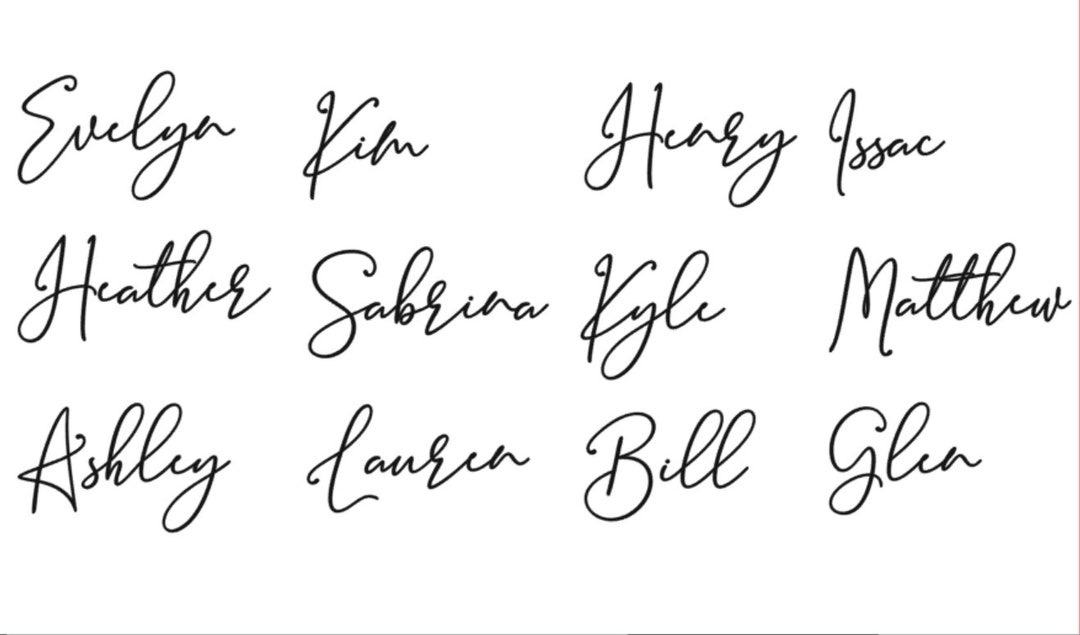 Evelyn Kim Henry Issac
Heather Sabrina Kyle Matthew
Ashley Lauren Bill Glen